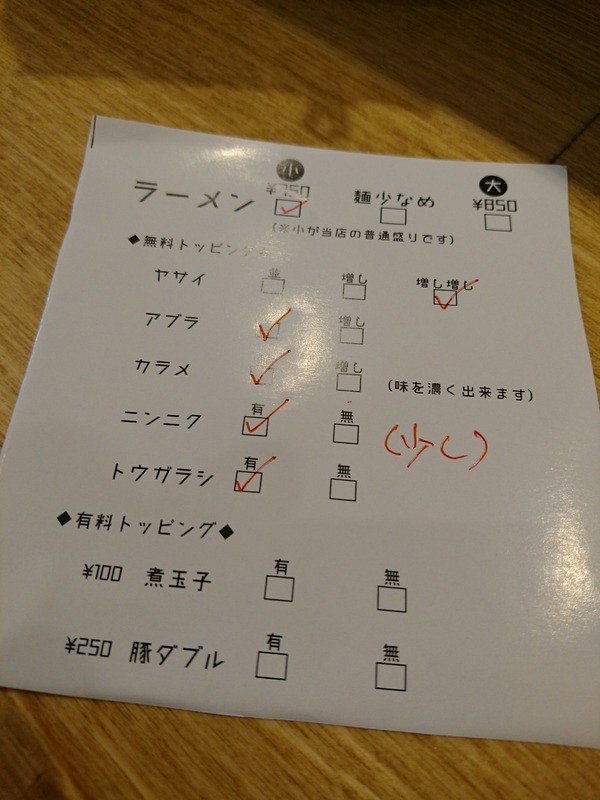 小 大
ラーメン ¥750 麺少なめ ¥850
(※小が当店の普通盛りです)
◆無料トッピング◆
ヤサイ 並 増し 増し増し
アブラ 増し
カラメ 増し (味を濃く出来ます)
ニンニク 有 無 (少し)
トウガラシ 有 無
◆有料トッピング◆
¥100 煮玉子 有 無
¥250 豚ダブル 有 無